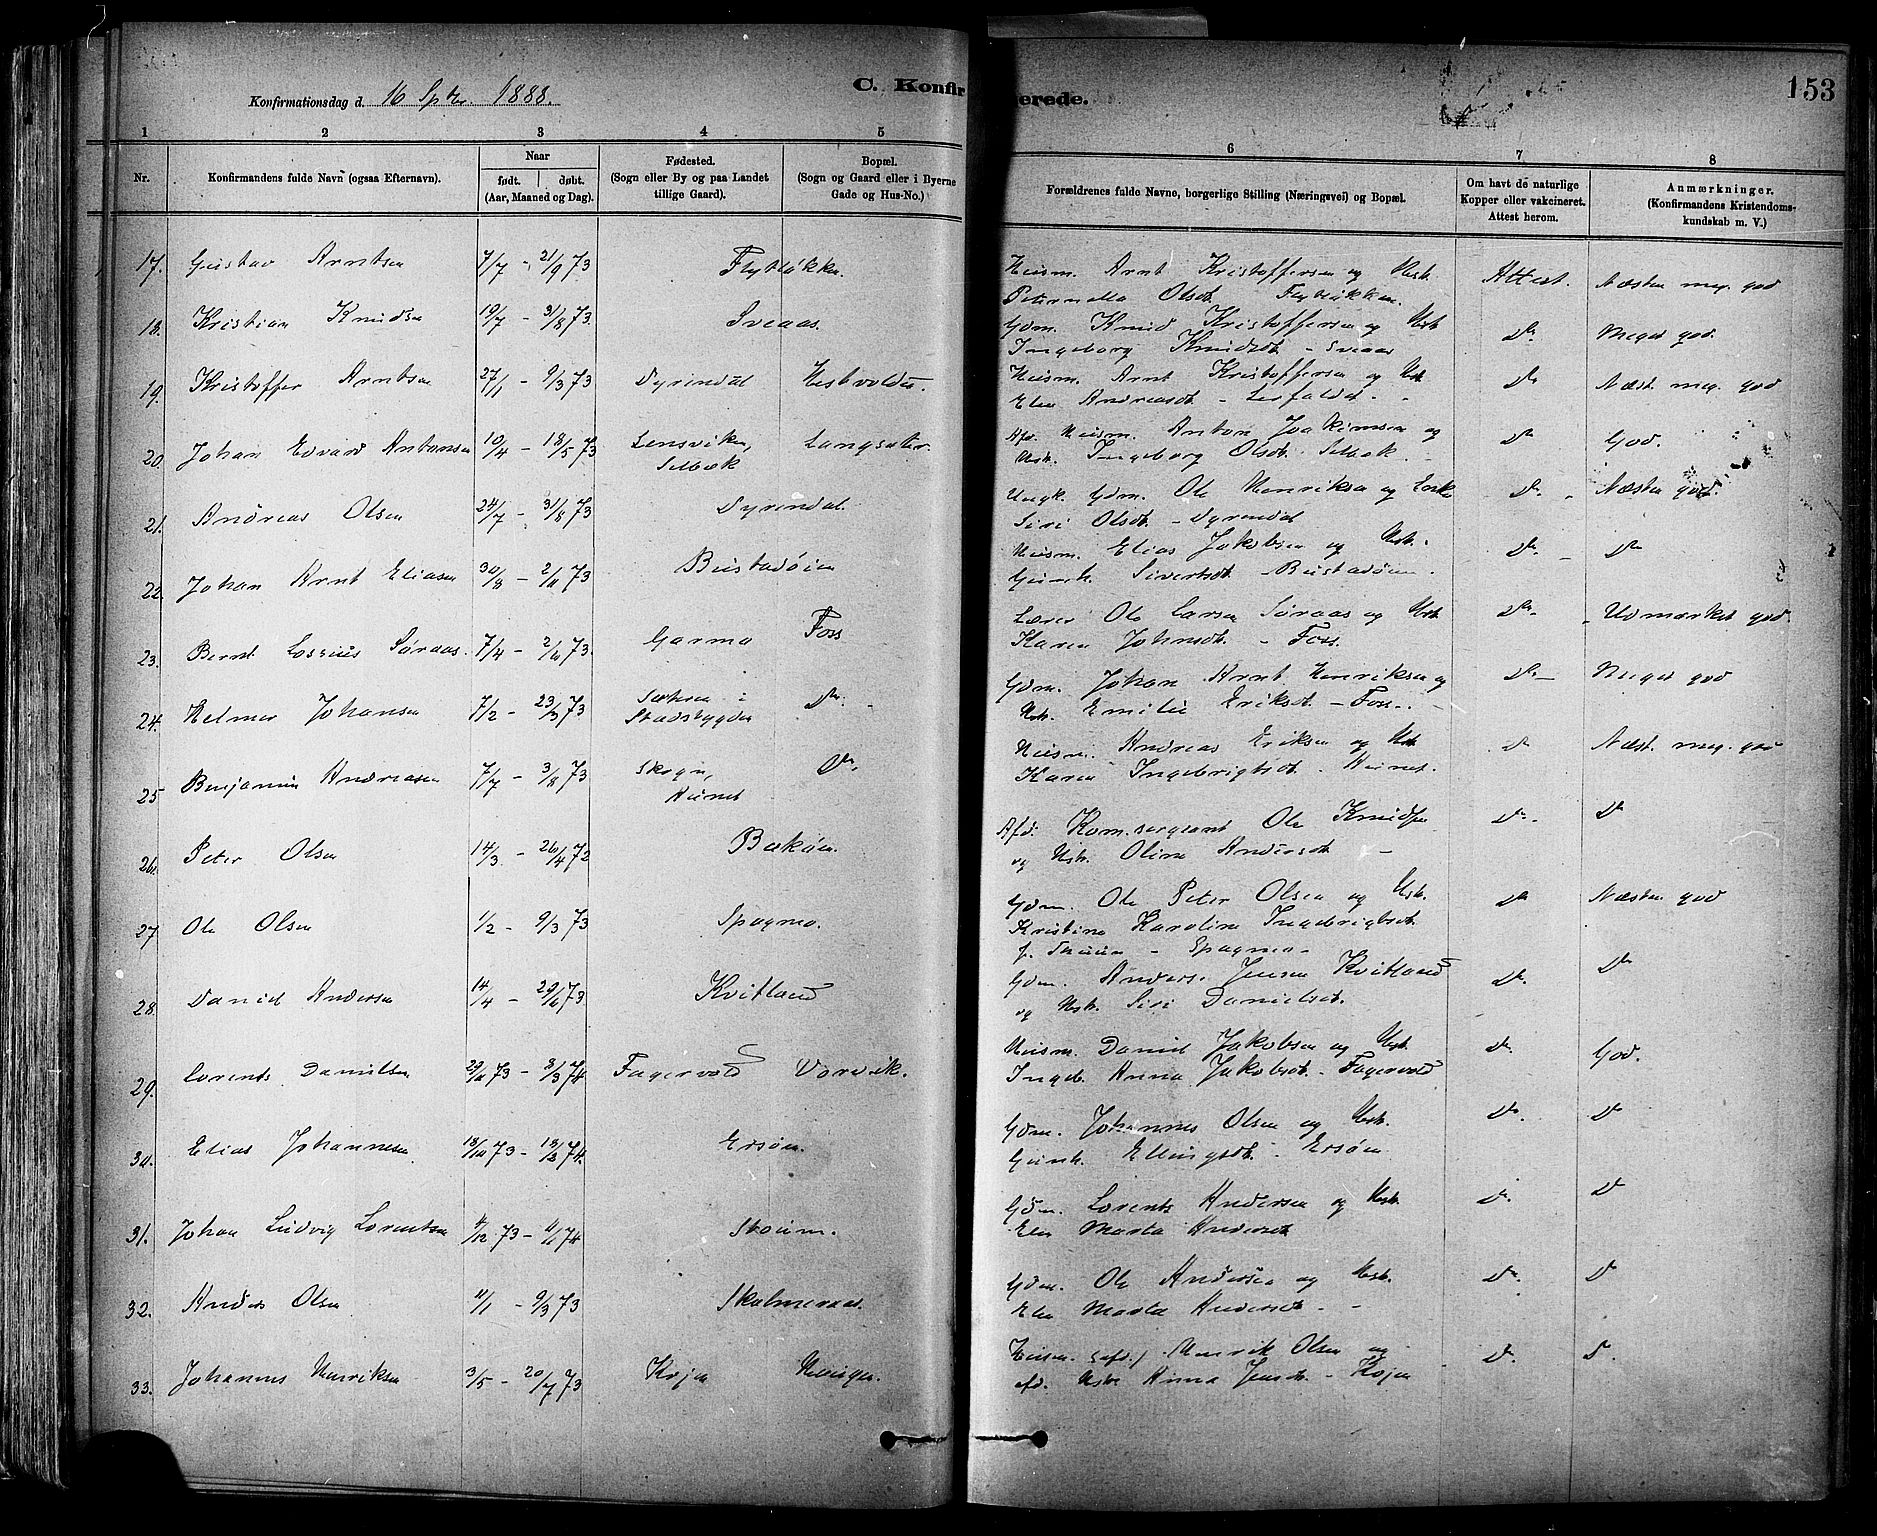 Konfirmationsdag d. 16 Sptr. 1888.
C. Konfirmerede.
153
1 2 3 4 5 6 7 8
Nr.
Konfirmandens fulde Navn (ogsaa Efternavn).
Naar
født. døbt.
(Aar, Maaned og Dag).
Fødested.
(Sogn eller By og paa Landet
tillige Gaard).
Bopæl.
(Sogn og Gaard eller i Byerne
Gade og Hus-No.)
Forældrenes fulde Navne, borgerlige Stilling (Næringsvei) og Bopæl.
Om havt de naturlige
Kopper eller vakcineret.
Attest herom.
Anmærkninger.
(Konfirmandens Kristendoms-
kundskab m. V.)
17. Gustav Arntsen 7/7 - 21/9 73 Flytløkken. Husm. Arnt Kristoffersen og Hstr. Attest. Næsten meg. god
Peternella Olsdt. Flytløkken.
18. Kristian Knudsen 19/7 - 31/8 73. Sveaas. Gdm. Knud Kristoffersen og Hstr. Do. Meget god.
Ingeborg Knudsdt. - Sveaas
19. Kristoffer Arntsen 27/1 - 9/3 73 Dyrendal Hestvolden. Husm. Arnt Kristoffersen og Hstr. Do Næst. meg. god
Elen Andreasdt. - Lerfaldet.
20. Johan Edvard Antonsen 10/4 - 18/5 73 Lensviken, Langsæter. Afd. Husm. Anton Joakimsen og Do God.
Selbæk Hstr. Ingeborg Olsdt. Selbæk.
21. Andreas Olsen 24/7 - 31/8 73 Dyrendal. Ungk. Gdm. Ole Henriksen og Enke Do. Næsten god.
Siri Olsdt. - Dyrendal
22. Johan Arnt Eliasen 30/8 - 2/11 73 Bustadøien Husm. Elias Jakobsen og Hstr. Do. Do
Gunh. Sivertsdt. Bustadøien.
23. Bernt Lossius Søraas. 7/4 - 2/6 73. Garmo Foss Lærer Ole Larsen Søraas og Hstr. Do. Udmærket god.
Karen Johnsdt. - Foss.
24. Helmer Johansen 7/2 - 23/3 73 Sæteren i Do. Gdm. Johan Arnt Henriksen og Do. Meget god
Stadsbygden Hstr. Emilie Eriksdt. - Foss.
25 Benjamin Andreasen 7/7 - 3/8 73 Skogn, Do. Husm. Andreas Eriksen og Hstr Do Næst. meg. god
Hunet Karen Ingebrigtsdt. Hunet.
26. Peter Olsen 14/3 - 26/4 72 Bækøien. Afd. Kom.sergeant Ole Knudsen Do. Do
og Hstr. Oline Andersdt -
27 Ole Olsen 1/2 - 9/3 73 Spagmo. Gdm. Ole Peter Olsen og Hstr. Do Næsten god
Kristine Karoline Ingebrigtsdt.
- Spagmo -
28. Daniel Andersen 14/4 - 29/6 73 Kvitland Gdm. Anders Jensen Kvitland Do. Do
og Hstr. Siri Danielsdt.
29. Lorents Danielsen 23/11 73 - 8/3 74 Fagervold Vorvik. Husm. Daniel Jakobsen og Hstr. Do. God.
Ingeb. Anna Jakobsdt. - Fagervold
30. Elias Johannesen 18/10 73 - 18/2 74. Ersøien. Gdm. Johannes Olsen og Hstr. Do. Do
Gunh. Ellingsdt. - Ersøien
31. Johan Ludvig Lorentsen 4/12 73 - 11/1 74 Skoium. Gdm. Lorents Andersen og Hstr. Do. Do
Elen Marta Andersdt
32. Anders Olsen 11/1 - 9/3 73 Skalmeraas. Gdm. Ole Andersen og Hstr. Do. Do
Elen Marta Andersdt. -
33. Johannes Henriksen 3/5 - 20/7 73 Kojen Husm. (afd.) Henrik Olsen og Do. Do.
afd. Hstr Anna Jensdt. - Kojen